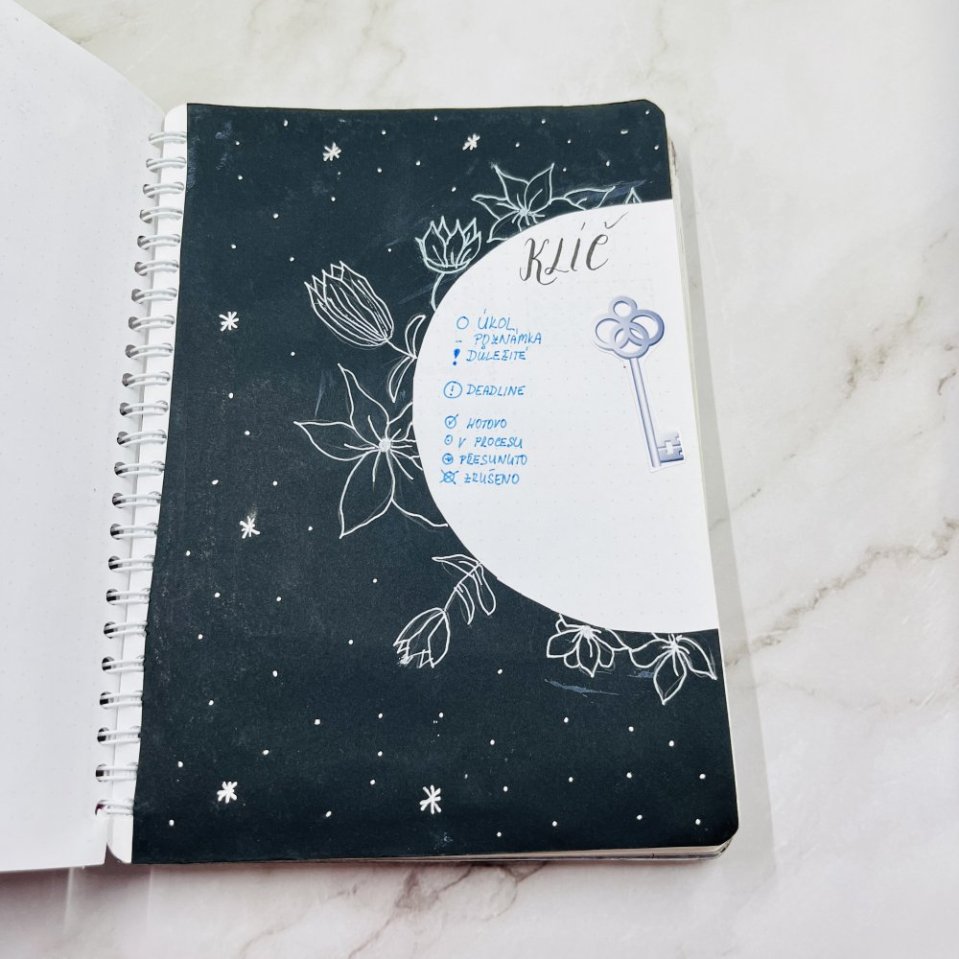 KLÍČ
ÚKOL
- POZNÁMKA
! DŮLEŽITÉ
! DEADLINE
HOTOVO
V PROCESU
PŘESUNUTO
ZRUŠENO